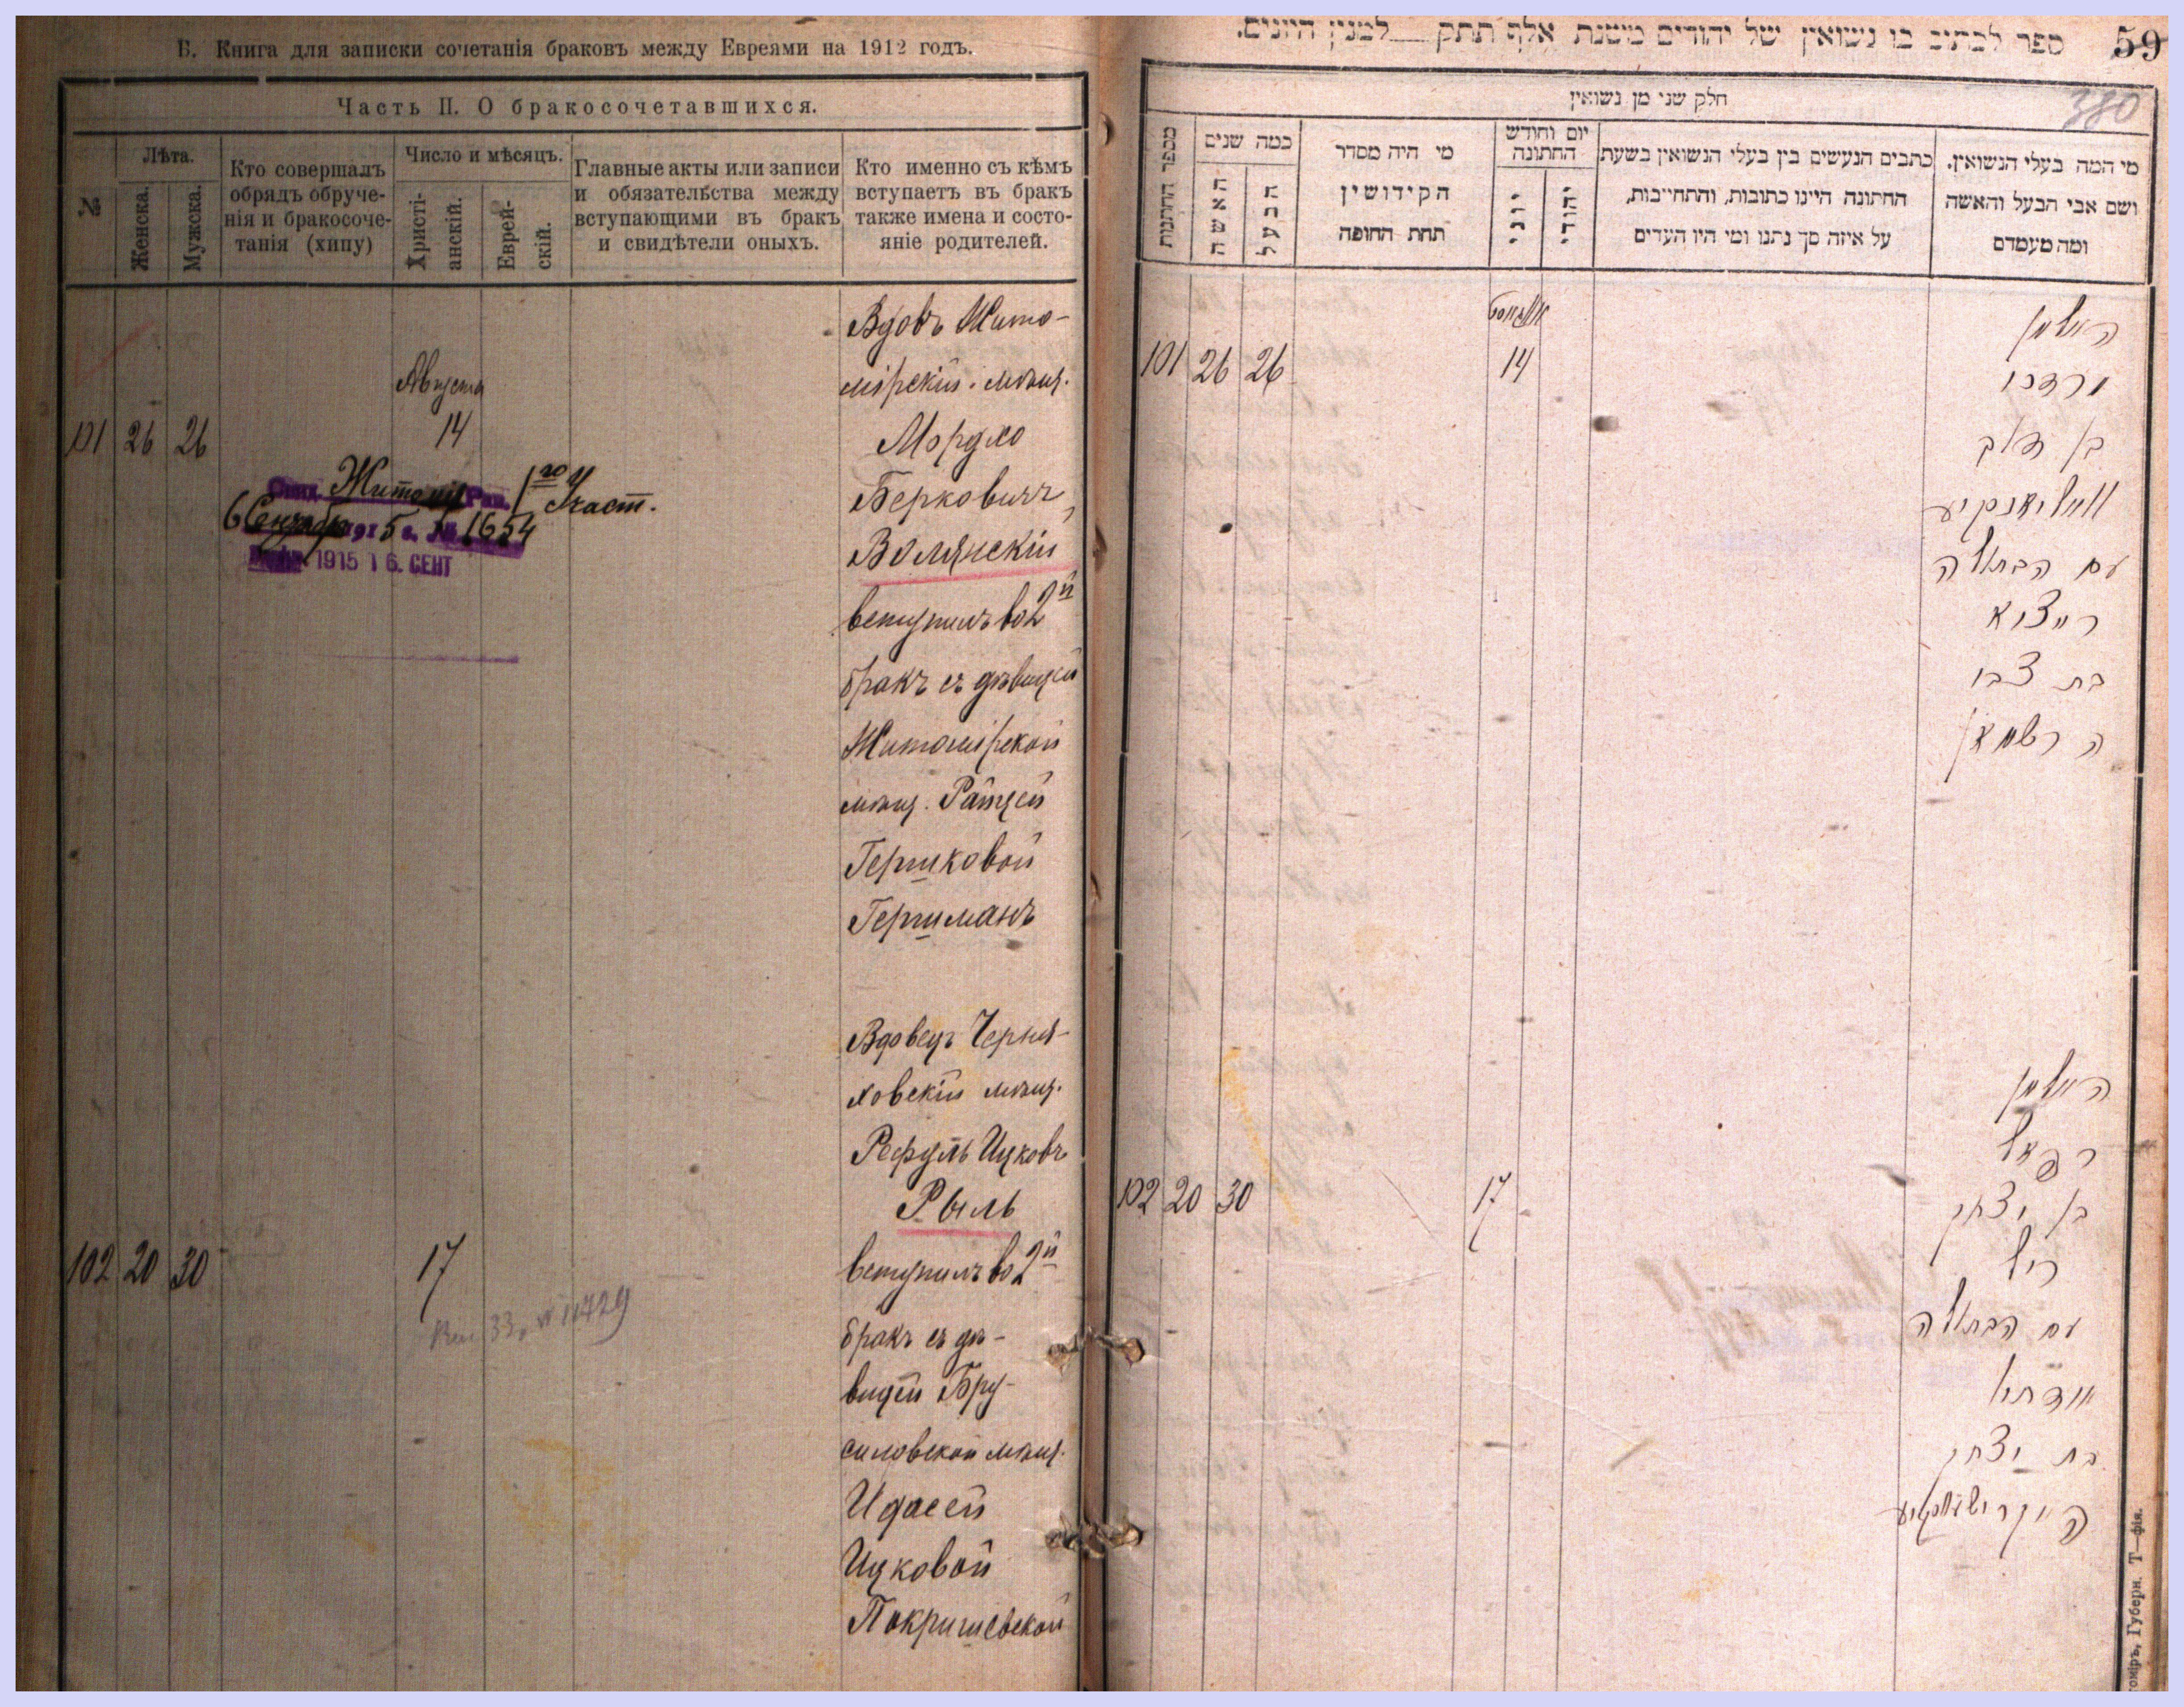 Б. Книга для записки сочетанія браковъ между Евреями на 1912 годъ.
Часть II. О бракосочетавшихся.
№
Лѣта.
Женска.
Мужска.
Кто совершалъ
обрядъ обруче-
нія и бракосоче-
танія (хипу)
Число и мѣсяцъ.
Христі-
анскій.
Еврей-
скій.
Главные акты или записи
и обязательства между
вступающими въ бракъ
и свидѣтели оныхъ.
Кто именно съ кѣмъ
вступаетъ въ бракъ
также имена и состо-
яніе родителей.
Августа
101 26 26 14
Житомир 1го Участ.
6 Сентября 1915 г. № 1654
1915 16. СЕНТ
Вдовъ Жито-
мірскій мѣщ.
Мордко
Берковичъ
Волянскій
вступилъ во 2й
бракъ съ дѣвицей
Житомірской
мѣщ. Райцей
Гершковой
Гершманъ
102 20 30 17
33, № 11729
Вдовецъ Черня-
ховскій мѣщ.
Рефуль Ицковъ
Рыль
вступилъ во 2й
бракъ съ дѣ-
вицей Бру-
силовской мѣщ.
Идасей
Ицковой
Покришевской
ספר לכתוב בו נשואין של יהודים משנת אלף תתק למנין היונים.
59
380
חלק שני מן נשואין
מספר החתונות
כמה שנים
האשה
הבעל
מי היה מסדר
הקידושין
תחת החופה
יום וחודש
החתונה
יוני
יהודי
כתבים הנעשים בין בעלי הנשואין בשעת
החתונה היינו כתובות, והתחייבות,
על איזה סך נתנו ומי היו העדים
מי המה בעלי הנשואין,
ושם אבי הבעל והאשה
ומה מעמדם
אווגוסט
101 26 26 14
האלמן
מרדכי
בן דוב
וואליאנסקיע
עם הבתולה
רייצא
בת צבי
הרשמאן
102 20 30 17
האלמן
רפאל
בן יצחק
ריל
עם הבתולה
בת יצחק
Губерн. Т—фія.